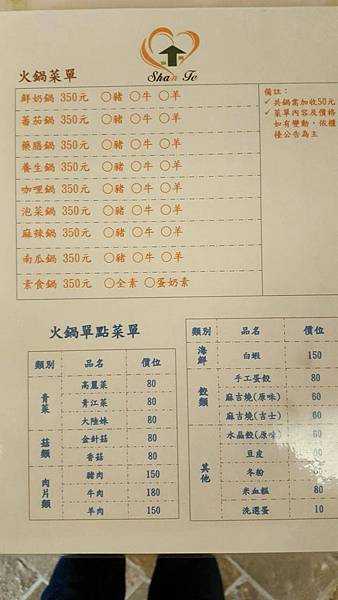 Shan Te
火鍋菜單
鮮奶鍋 350元 ○豬 ○牛 ○羊
蕃茄鍋 350元 ○豬 ○牛 ○羊
藥膳鍋 350元 ○豬 ○牛 ○羊
養生鍋 350元 ○豬 ○牛 ○羊
咖哩鍋 350元 ○豬 ○牛 ○羊
泡菜鍋 350元 ○豬 ○牛 ○羊
麻辣鍋 350元 ○豬 ○牛 ○羊
南瓜鍋 350元 ○豬 ○牛 ○羊
素食鍋 350元 ○全素 ○蛋奶素
備註:
✓ 共鍋需加收50元
✓ 菜單內容及價格
如有變動,依櫃
檯公告為主
火鍋單點菜單
類別 品名 價位
青菜
高麗菜 80
青江菜 80
大陸妹 80
菇類
金針菇 80
香菇 80
肉片類
豬肉 150
牛肉 180
羊肉 150
類別 品名 價位
海鮮
白蝦 150
餃類
手工蛋餃 80
麻吉燒(原味) 60
麻吉燒(吉士) 60
其他
水晶餃(原味)
豆皮
冬粉
米血糕 80
洗選蛋 10